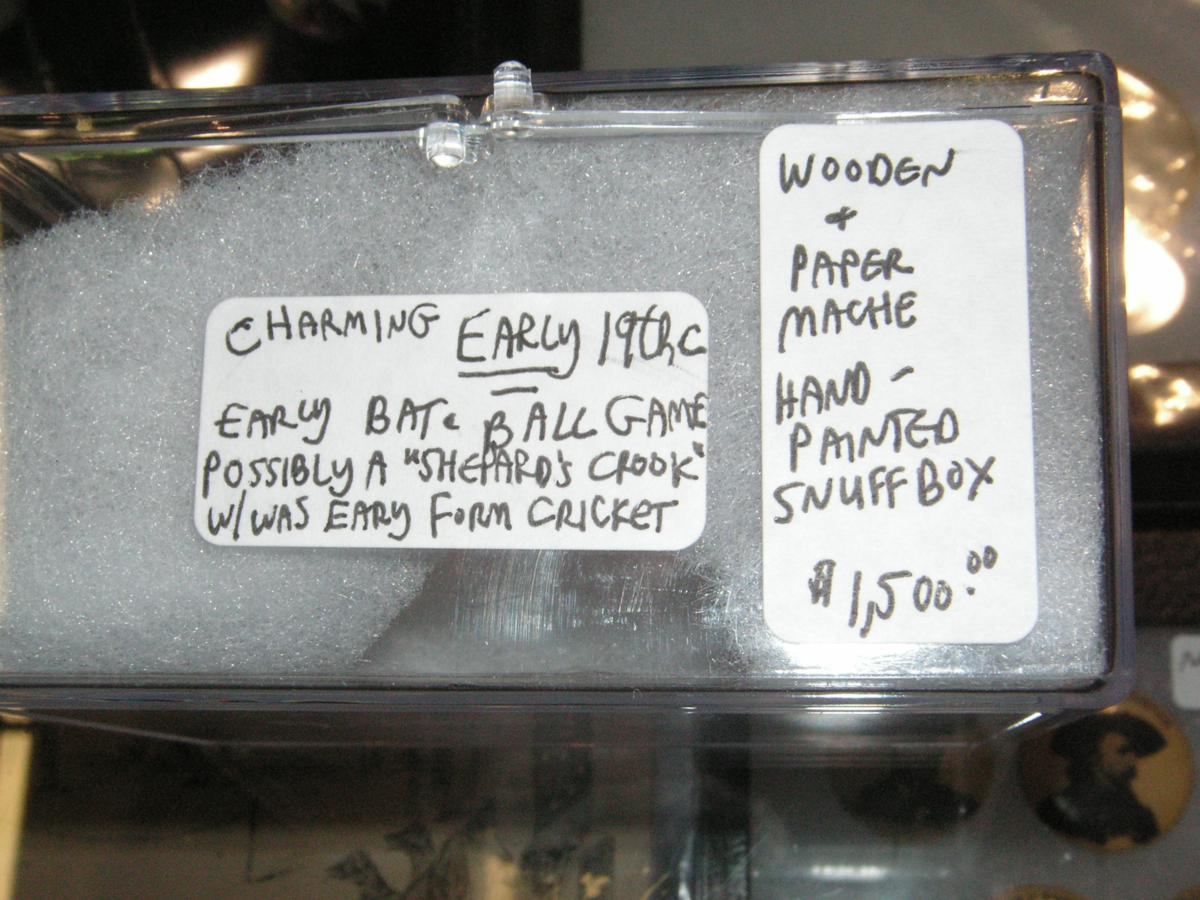 CHARMING EARLY 19th c
EARLY BAT & BALL GAME
POSSIBLY A "SHEPARD'S CROOK"
W/WAS EARY FORM CRICKET
WOODEN
+
PAPER
MACHE
HAND-
PAINTED
SNUFF BOX
$1,500.00